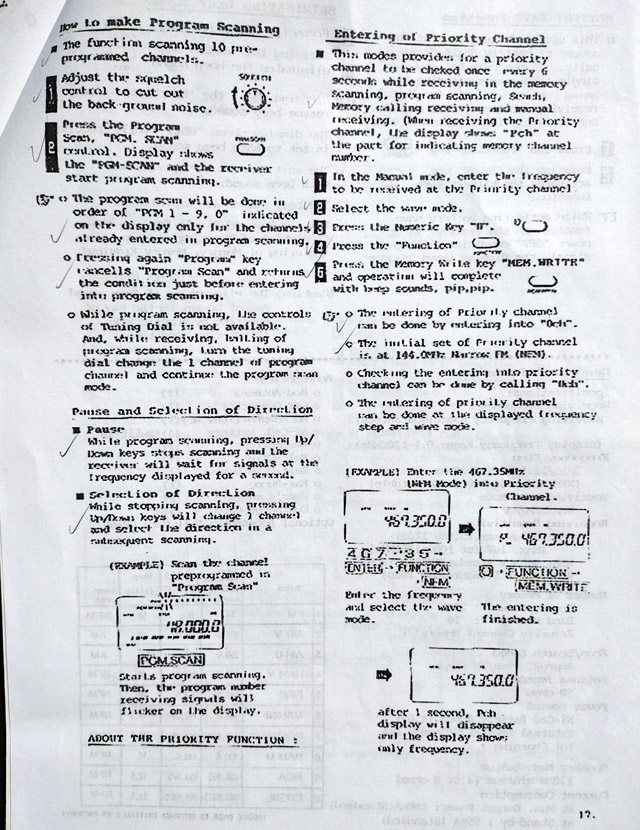 How to make Program Scanning
■ The function scanning 10 pre-
programmed channels.
1 Adjust the squelch
control to cut out
the back-ground noise.
SQUELCH
2 Press the Program
Scan, "PGM. SCAN"
control. Display shows
the "PGM-SCAN" and the receiver
start program scanning.
PGM.SCAN
o The program scan will be done in
order of "PGM 1 - 9, 0" indicated
on the display only for the channels
already entered in program scanning.
o Pressing again "Program" key
cancells "Program Scan" and returns
the condition just before entering
into program scanning.
o While program scanning, the controls
of Tuning Dial is not available.
And, while receiving, halling of
program scanning, turn the tuning
dial change the 1 channel of program
channel and continue the program scan
mode.
Pause and Selection of Direction
■ Pause
While program scanning, pressing Up/
Down keys stops scanning and the
receiver will wait for signals at the
frequency displayed for a second.
■ Selection of Direction
While stopping scanning, pressing
Up/Down keys will change 1 channel
and select the direction in a
subsequent scanning.
(EXAMPLE) Scan the channel
preprogrammed in
"Program Scan"
PGM.SCAN
Starts program scanning.
Then, the program number
receiving signals will
flicker on the display.
ABOUT THE PRIORITY FUNCTION :
Entering of Priority Channel
■ This modes provides for a priority
channel to be cheked once every 6
seconds while receiving in the memory
scanning, program scanning, Search,
Memory calling receiving and manual
receiving. (When receiving the Priority
channel, the display shows "Pch" at
the part for indicating memory channel
number.
1 In the Manual mode, enter the frequency
to be received at the Priority channel.
2 Select the wave mode.
3 Press the Numeric Key "0".
4 Press the "Function"
FUNCTION
5 Press the Memory Write key "MEM.WRITE"
and operation will complete
with beep sounds, pip,pip.
o The entering of Priority channel
can be done by entering into "0ch".
o The initial set of Priority channel
is at 144.0MHz Narrow FM (NFM).
o Checking the entering into priority
channel can be done by calling "0ch".
o The entering of priority channel
can be done at the displayed frequency
step and wave mode.
(EXAMPLE) Enter the 467.35MHz
(NFM Mode) into Priority
Channel.
467.350.0
467.350.0
4 6 7 . 3 5 →
ENTER → FUNCTION
→ NFM
0 → FUNCTION →
MEM.WRITE
Enter the frequency
and select the wave
mode.
The entering is
finished.
467.350.0
after 1 second, Pch
display will disappear
and the display shows
only frequency.
17.